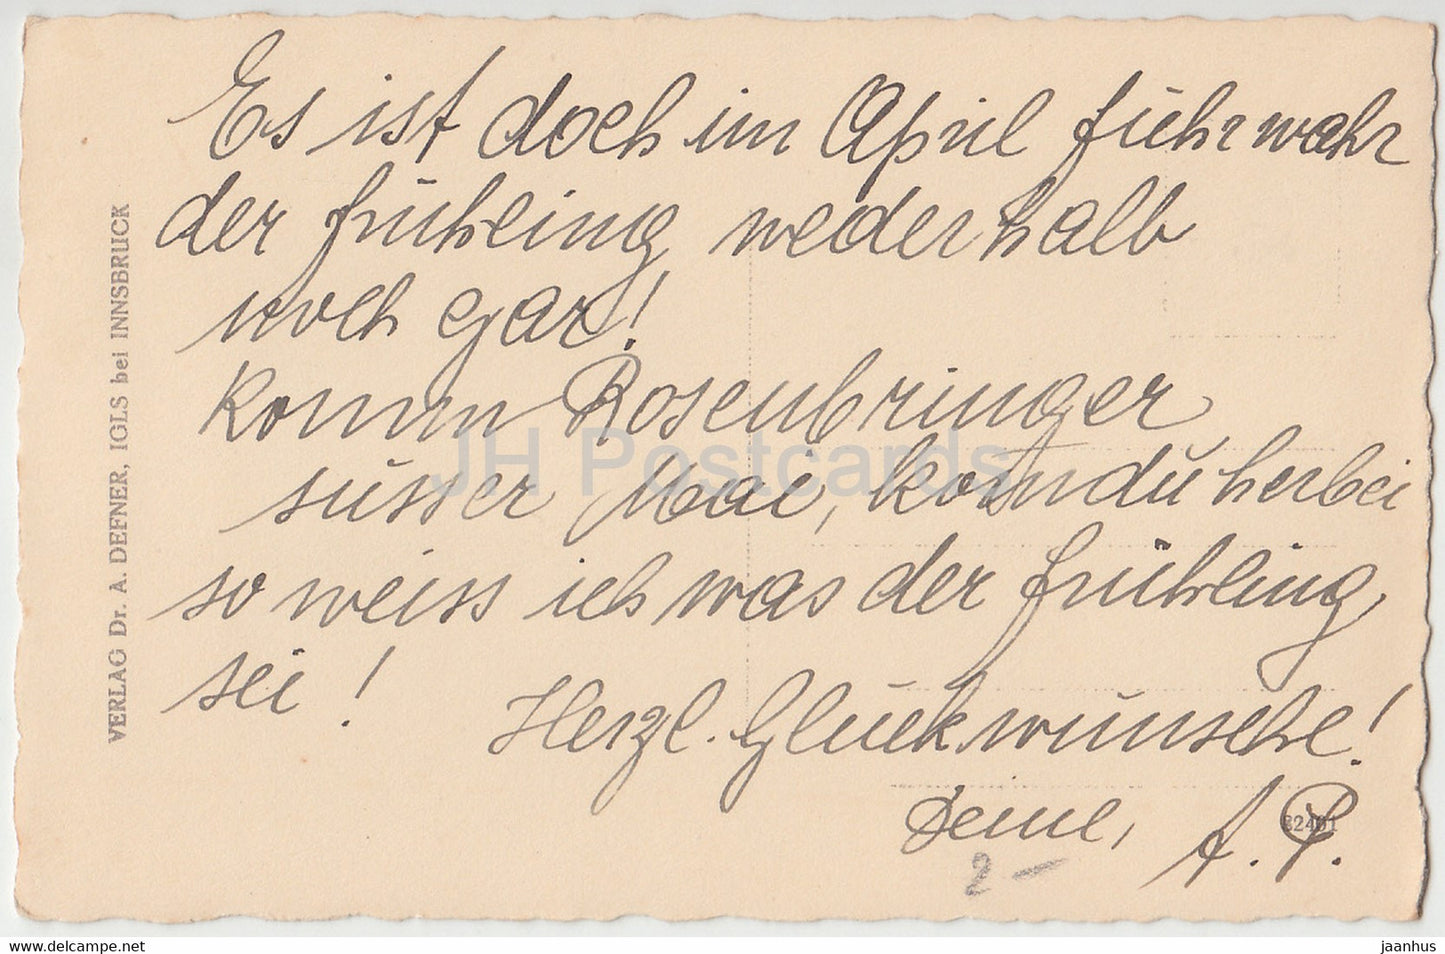 Es ist doch im April führwahr
der frühling weder halb
noch gar!
Komm Rosenbringer,
süsser Mai, komm du herbei
so weiss ich was der frühling
sei!
Herzl. Glückwünsche!
Deine,
A. P.
2 –
VERLAG Dr. A. DEFNER, IGLS bei INNSBRUCK
JH Postcards
hippostcard.com
jaanhus